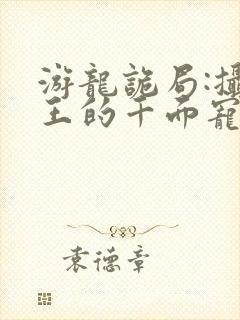 游龍詭局:攝
王的千面寵
袁德章